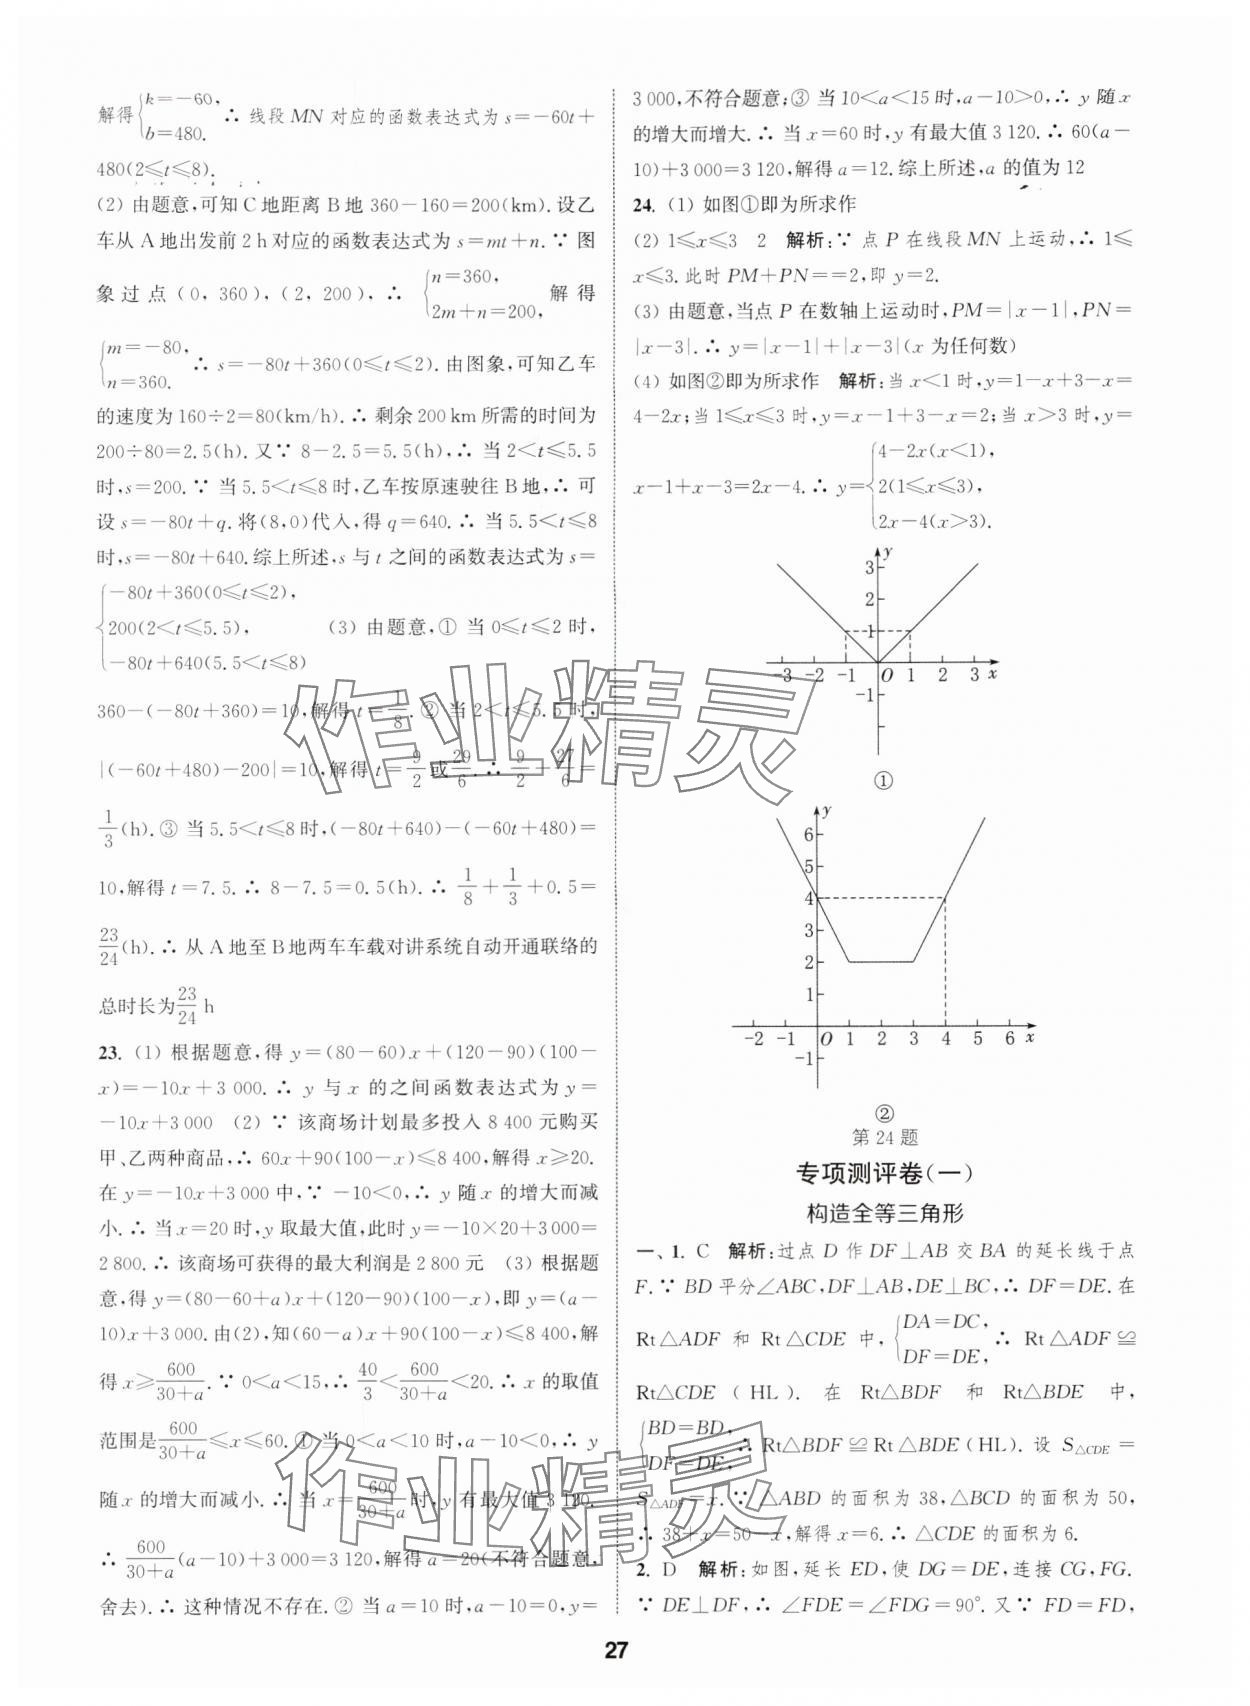 解得{k=-60, b=480. ∴ 线段 MN 对应的函数表达式为 s=-60t+
480(2≤t≤8).
(2) 由题意,可知 C 地距离 B 地 360-160=200(km).设乙
车从 A 地出发前 2 h 对应的函数表达式为 s=mt+n.∵ 图
象过点(0,360),(2,200),∴ {n=360, 2m+n=200, 解得
{m=-80, n=360. ∴ s=-80t+360(0≤t≤2).由图象,可知乙车
的速度为 160÷2=80(km/h).∴ 剩余 200 km 所需的时间为
200÷80=2.5(h).又∵ 8-2.5=5.5(h),∴ 当 2<t≤5.5
时,s=200.∵ 当 5.5<t≤8 时,乙车按原速驶往 B 地,∴ 可
设 s=-80t+q.将(8,0)代入,得 q=640.∴ 当 5.5<t≤8
时,s=-80t+640.综上所述,s 与 t 之间的函数表达式为 s=
{-80t+360(0≤t≤2),
200(2<t≤5.5), (3) 由题意,① 当 0≤t≤2 时,
-80t+640(5.5<t≤8)
360-(-80t+360)=10,解得 t=1/8.② 当 2<t≤5.5 时,
|(-60t+480)-200|=10,解得 t=9/2 或 29/6.∴ 9/2+27/6=
1/3(h).③ 当 5.5<t≤8 时,(-80t+640)-(-60t+480)=
10,解得 t=7.5.∴ 8-7.5=0.5(h).∴ 1/8+1/3+0.5=
23/24(h).∴ 从 A 地至 B 地两车车载对讲系统自动开通联络的
总时长为 23/24 h
23. (1) 根据题意,得 y=(80-60)x+(120-90)(100-
x)=-10x+3 000.∴ y 与 x 的之间函数表达式为 y=
-10x+3 000 (2) ∵ 该商场计划最多投入 8 400 元购买
甲、乙两种商品,∴ 60x+90(100-x)≤8 400,解得 x≥20.
在 y=-10x+3 000 中,∵ -10<0,∴ y 随 x 的增大而减
小.∴ 当 x=20 时,y 取最大值,此时 y=-10×20+3 000=
2 800.∴ 该商场可获得的最大利润是 2 800 元 (3) 根据题
意,得 y=(80-60+a)x+(120-90)(100-x),即 y=(a-
10)x+3 000.由(2),知(60-a)x+90(100-x)≤8 400,解
得 x≥600/30+a.∵ 0<a<15,∴ 40/3<600/30+a<20.∴ x 的取值
范围是 600/30+a≤x≤60.① 当 0<a<10 时,a-10<0,∴ y
随 x 的增大而减小.∴ 当 x=600/30+a 时,y 有最大值 3 120.
∴ 600/30+a(a-10)+3 000=3 120,解得 a=20(不符合题意,
舍去).∴ 这种情况不存在.② 当 a=10 时,a-10=0,y=
3 000,不符合题意;③ 当 10<a<15 时,a-10>0,∴ y 随 x
的增大而增大.∴ 当 x=60 时,y 有最大值 3 120.∴ 60(a-
10)+3 000=3 120,解得 a=12.综上所述,a 的值为 12
24. (1) 如图①即为所求作
(2) 1≤x≤3 2 解析:∵ 点 P 在线段 MN 上运动,∴ 1≤
x≤3.此时 PM+PN==2,即 y=2.
(3) 由题意,当点 P 在数轴上运动时,PM=|x-1|,PN=
|x-3|.∴ y=|x-1|+|x-3|(x 为任何数)
(4) 如图②即为所求作 解析:当 x<1 时,y=1-x+3-x=
4-2x;当 1≤x≤3 时,y=x-1+3-x=2;当 x>3 时,y=
x-1+x-3=2x-4.∴ y={4-2x(x<1),
2(1≤x≤3),
2x-4(x>3).
y
3
2
1
-3 -2 -1 O 1 2 3 x
-1
①
y
6
5
4
3
2
1
-2 -1 O 1 2 3 4 5 6 x
-1
②
第 24 题
专项测评卷(一)
构造全等三角形
一、1. C 解析:过点 D 作 DF⊥AB 交 BA 的延长线于点
F.∵ BD 平分∠ABC,DF⊥AB,DE⊥BC,∴ DF=DE.在
Rt△ADF 和 Rt△CDE 中,{DA=DC, DF=DE, ∴ Rt△ADF≌
Rt△CDE(HL).在 Rt△BDF 和 Rt△BDE 中,
{BD=BD, DF=DE, ∴ Rt△BDF≌Rt△BDE(HL).设 S△CDE=
S△ADF=x.∵ △ABD 的面积为 38,△BCD 的面积为 50,
∴ 38+x=50-x,解得 x=6.∴ △CDE 的面积为 6.
2. D 解析:如图,延长 ED,使 DG=DE,连接 CG,FG.
∵ DE⊥DF,∴ ∠FDE=∠FDG=90°.又∵ FD=FD,
27
作业精灵
作业精灵